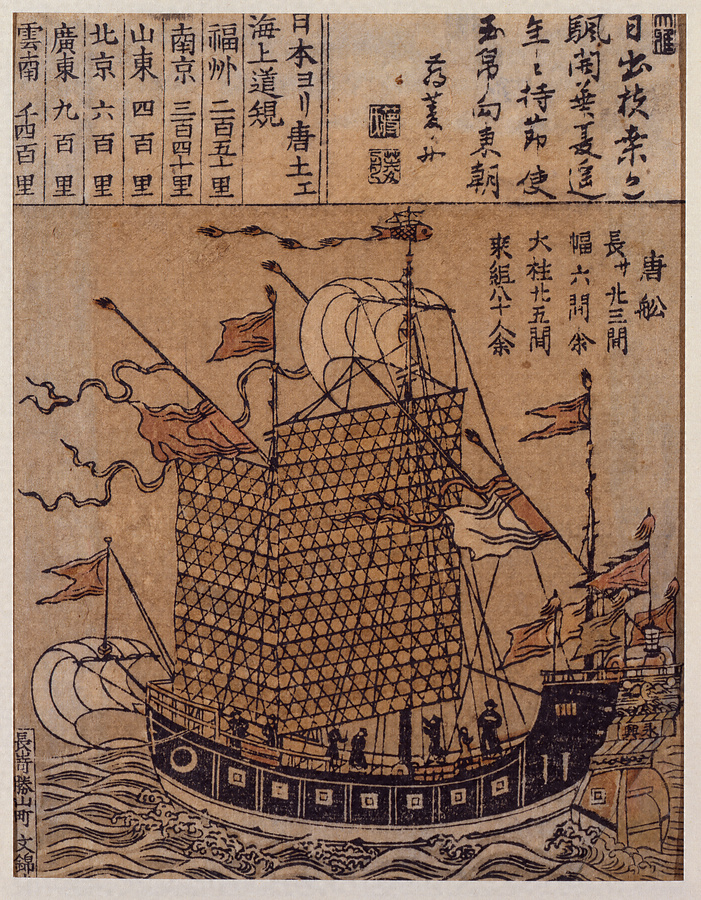 日出扶桑
颿開華夏遥
年々持節使
玉帛向東朝
日本ヨリ唐土エ
海上道規
福州 二百五十里
南京 三百四十里
山東 四百里
北京 六百里
廣東 九百里
雲南 千四百里
唐舩
長サ廿三間
幅六間余
大柱廿五間
乗組八十人余
永興
長嵜勝山町 文錦